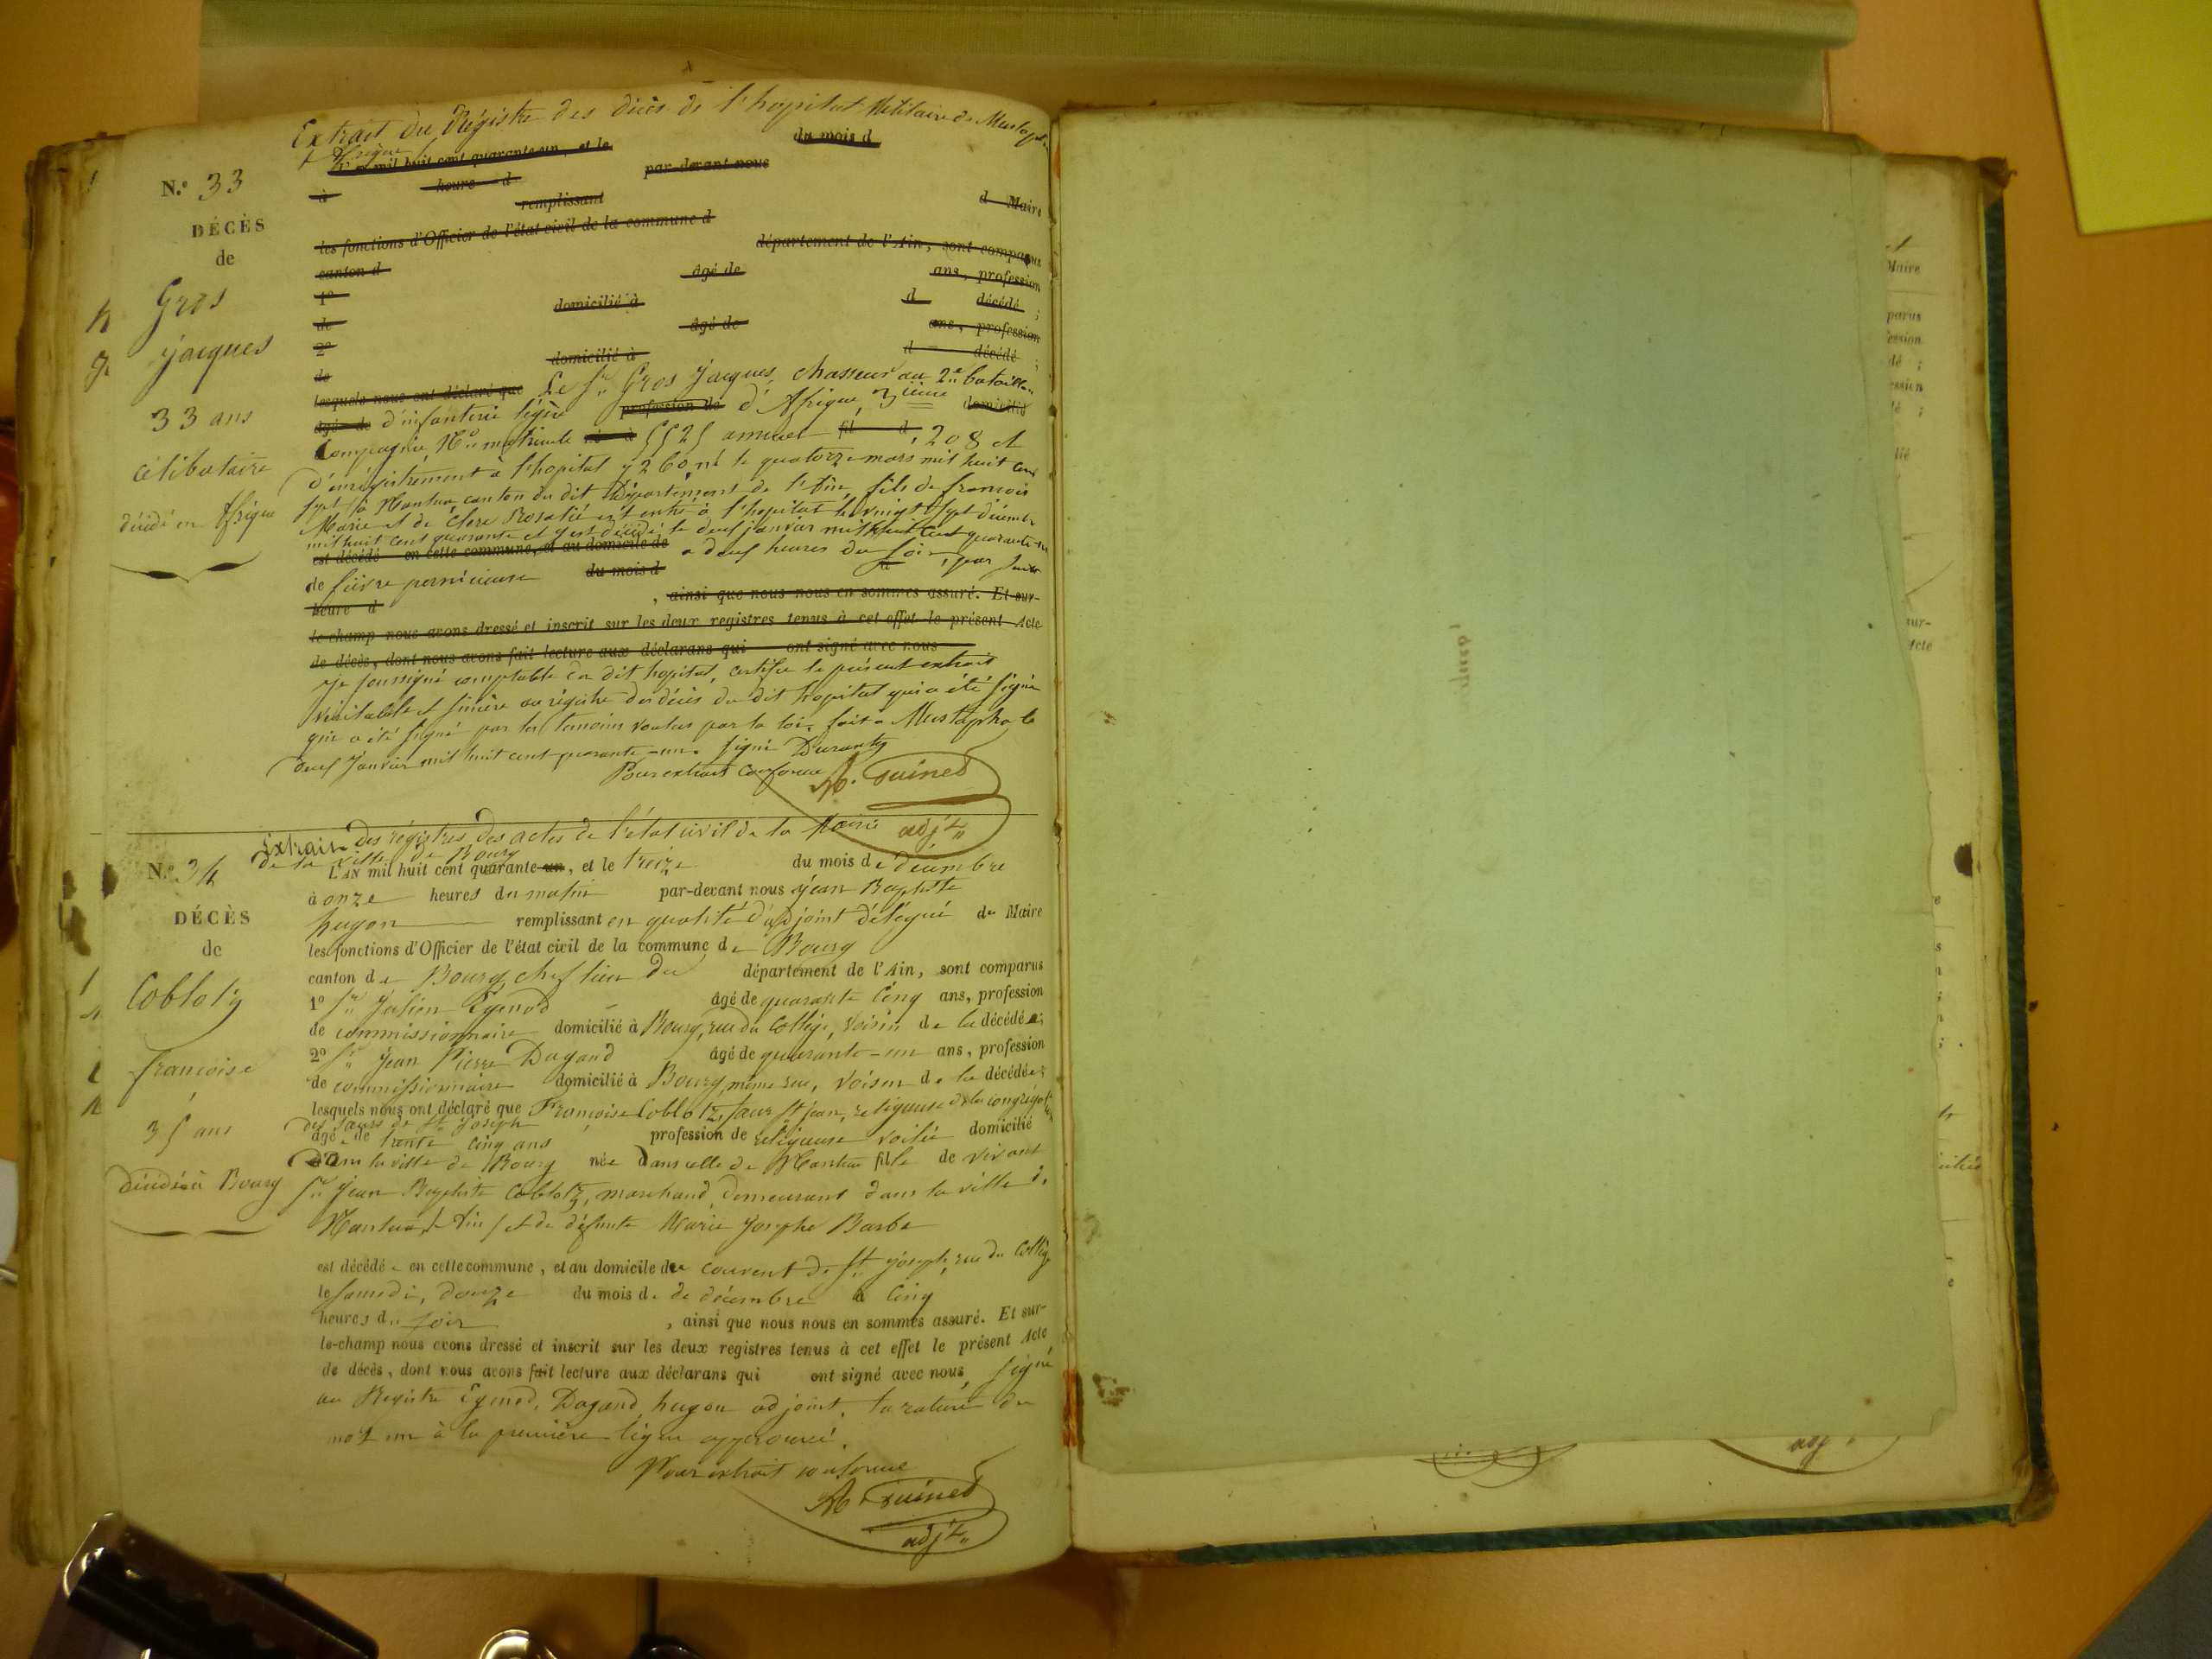 Extrait du Régistre des décès de l'hopital Militaire de Mustapha
Afrique
L'an mil huit cent quarante-un, et le du mois d
à heure d par-devant nous
remplissant d Maire
les fonctions d'Officier de l'état civil de la commune d
canton d département de l'Ain, sont comparus
1º âgé de ans, profession
de domicilié à d décédé ;
2º âgé de ans, profession
de domicilié à d décédé ;
lesquels nous ont déclaré que Le Sr Gros Jacques, chasseur au 2e bataillon
âgé de d'infanterie légère profession de d'Afrique, 3ième domicilié
Compagnie, No matricule né à 5525 annuel fil d 208 et
d'enrégistrement à l'hopital 7260, né le quatorze mars mil huit cent
sept à Nantua, canton du dit Département de l'Ain, fils de françois
Marie et de Clere Rosalie est entré à l'hopital le vingt sept décembre
mil huit cent quarante et y est décédé le deux janvier mil huit cent quarante-un
est décédé en cette commune, et au domicile de à deux heures du soir, par suite
de fièvre pernicieuse du mois d à
heure d , ainsi que nous nous en sommes assuré. Et sur-
le-champ nous avons dressé et inscrit sur les deux registres tenus à cet effet le présent Acte
de décès, dont nous avons fait lecture aux déclarans qui ont signé avec nous
Je soussigné comptable du dit hopital, certifie le présent extrait
véritable et sincère au régistre des décès du dit hopital qui a été signé
qui a été signé par les temoins voulus par la loi. fait à Mustapha le
deux Janvier mil huit cent quarante-un. signé Duranty
Pour extrait conforme
adjt
N.º 33
DÉCÈS
de
Gros
jacques
33 ans
célibataire
décédé en Afrique
Extrait des régistres des actes de l'état civil de la Mairie
de la ville de Bourg
L'AN mil huit cent quarante-un, et le treize du mois de décembre
à onze heures du matin par-devant nous jean Baptiste
hugon remplissant en qualité d'adjoint délégué du Maire
les fonctions d'Officier de l'état civil de la commune de Bourg
canton de Bourg, chef lieu du département de l'Ain, sont comparus
1º Sr Julien Egenod âgé de quarante cinq ans, profession
de commissionnaire domicilié à Bourg, rue du Collège, voisin de la décédée;
2º Sr Jean Pierre Dagand âgé de quarante-un ans, profession
de commissionnaire domicilié à Bourg, même rue, voisin de la décédée;
lesquels nous ont déclaré que Françoise Coblotz, sœur St jean, religieuse de la congrégation
des sœurs de St Joseph
âgée de trente cinq ans profession de religieuse voilée domicilié
dans la ville de Bourg née dans celle de Nantua fille de vivant
Sr Jean Baptiste Coblotz, marchand demeurant dans la ville de
Nantua / Ain / et de défunte Marie Josephe Barbe
est décédée en cette commune, et au domicile du couvent de St Joseph, rue du Collège
le samedi, douze du mois de de décembre à cinq
heures du soir , ainsi que nous nous en sommes assuré. Et sur-
le-champ nous avons dressé et inscrit sur les deux registres tenus à cet effet le présent Acte
de décès, dont nous avons fait lecture aux déclarans qui ont signé avec nous, signé
au Registre Egenod, Dagand, hugon adjoint. la rature du
mot un à la première ligne approuvée.
Pour extrait conforme
adjt
N.º 34
DÉCÈS
de
Coblotz
françoise
35 ans
décédée à Bourg